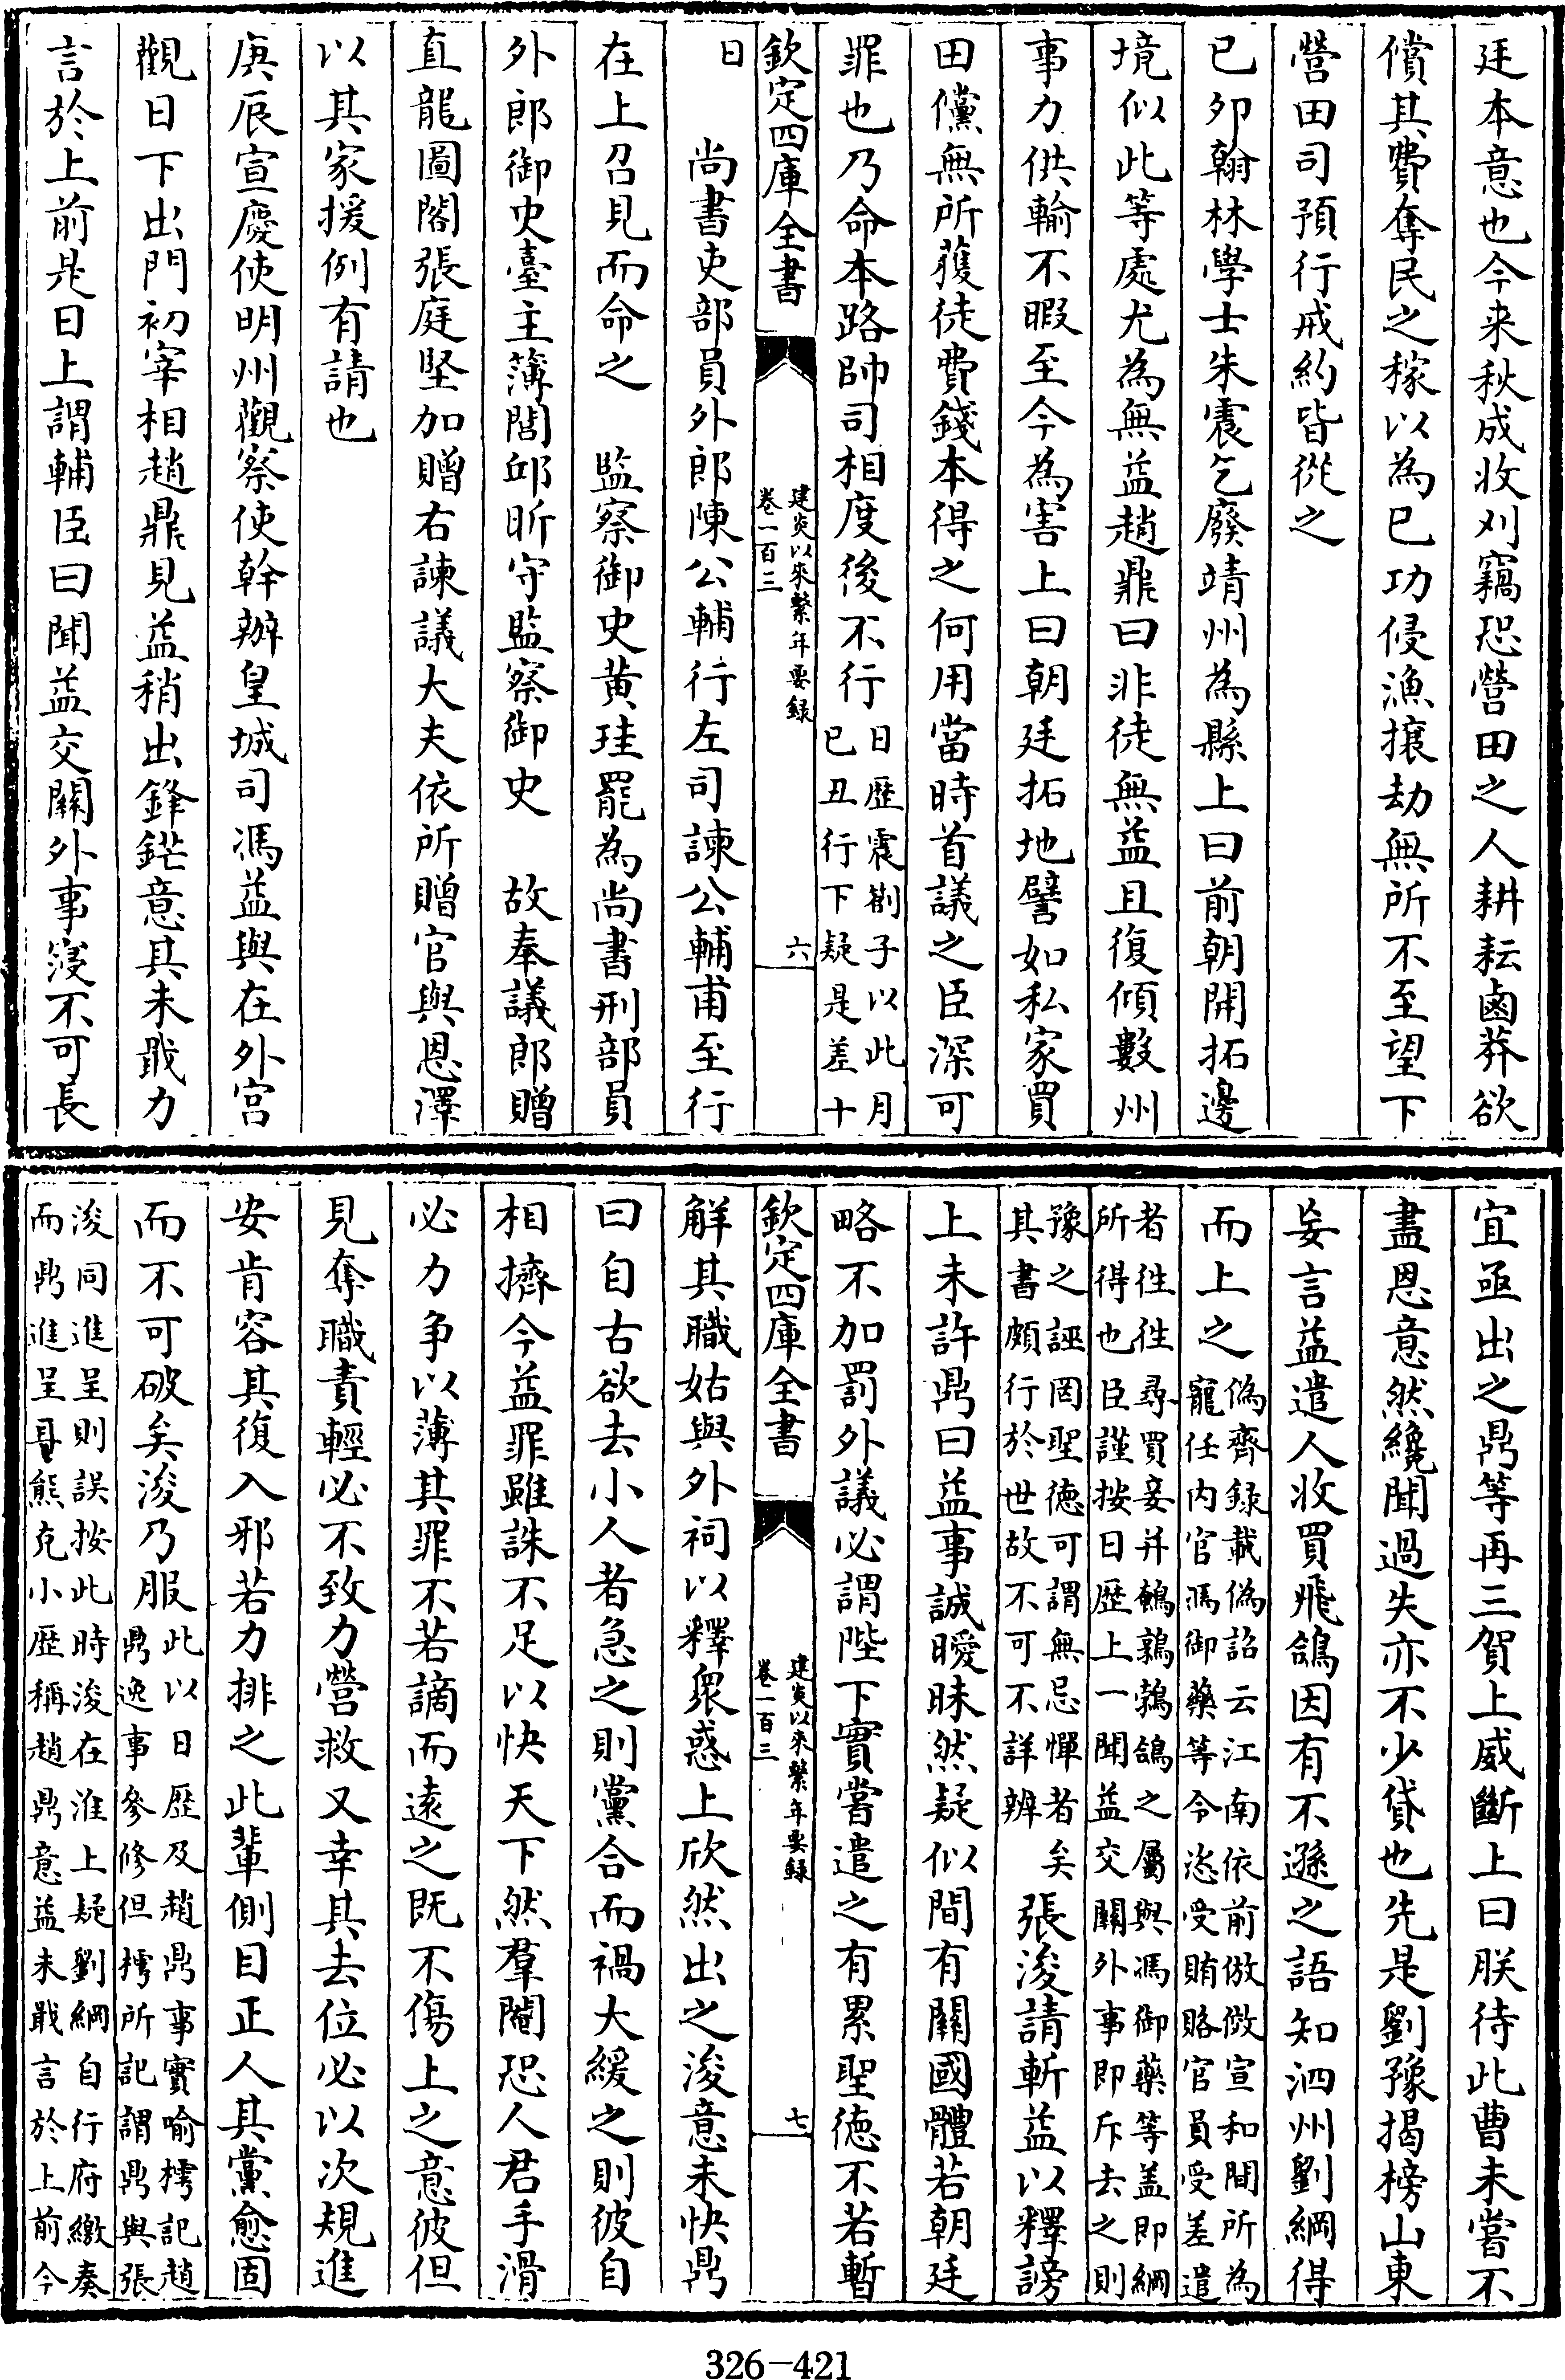 廷本意也今来秋成收刈竊恐營田之人耕耘鹵莽欲
償其費奪民之稼以為已功侵漁攘劫無所不至望下
營田司預行戒約皆從之
已夘翰林學士朱震乞廢靖州為縣上曰前朝開拓邊
境似此等處尤為無益趙鼎曰非徒無益且復傾數州
事力供輸不暇至今為害上曰朝廷拓地譬如私家買
田儻無所獲徒費錢本得之何用當時首議之臣深可
罪也乃命本路帥司相度後不行
日歴震劄子以此月
已丑行下疑是差十
欽定四庫全書
建炎以來繫年要録
卷一百三
六
日
尚書吏部員外郎陳公輔行左司諫公輔甫至行
在上召見而命之　監察御史黄珪罷為尚書刑部員
外郎御史臺主簿閭邱昕守監察御史　故奉議郎贈
直龍圖閣張庭堅加贈右諫議大夫依所贈官與恩澤
以其家援例有請也
庚辰宣慶使明州觀察使幹辦皇城司馮益與在外宫
觀日下出門初宰相趙鼎見益稍出鋒鋩意其未戢力
言於上前是日上謂輔臣曰聞益交關外事寖不可長
宜亟出之鼎等再三賀上威斷上曰朕待此曹未嘗不
盡恩意然纔聞過失亦不少貸也先是劉豫揭榜山東
妄言益遣人收買飛鴿因有不遜之語知泗州劉綱得
而上之
偽齊録載偽詔云江南依前倣傚宣和間所為
寵任内官馮御藥等令恣受賄賂官員受差遣
者徃徃尋買妾并鵪鶉鵓鴿之屬與馮御藥等盖即綱
所得也臣謹按日歴上一聞益交關外事即斥去之則
豫之誣罔聖德可謂無忌憚者矣
其書頗行於世故不可不詳辨
張浚請斬益以釋謗
上未許鼎曰益事誠曖昧然疑似間有關國體若朝廷
略不加罰外議必謂陛下實嘗遣之有累聖德不若暫
欽定四庫全書
建炎以來繫年要録
卷一百三
七
解其職姑與外祠以釋衆惑上欣然出之浚意未快鼎
曰自古欲去小人者急之則黨合而禍大緩之則彼自
相擠今益罪雖誅不足以快天下然羣閹恐人君手滑
必力争以薄其罪不若謫而遠之既不傷上之意彼但
見奪職責輕必不致力營救又幸其去位必以次規進
安肯容其復入邪若力排之此輩側目正人其黨愈固
而不可破矣浚乃服
此以日歴及趙鼎事實喻樗記趙
鼎逸事參修但樗所記謂鼎與張
浚同進呈則誤按此時浚在淮上疑劉綱自行府繳奏
而鼎進呈耳熊克小歴稱趙鼎意益未戢言於上前今
326—421